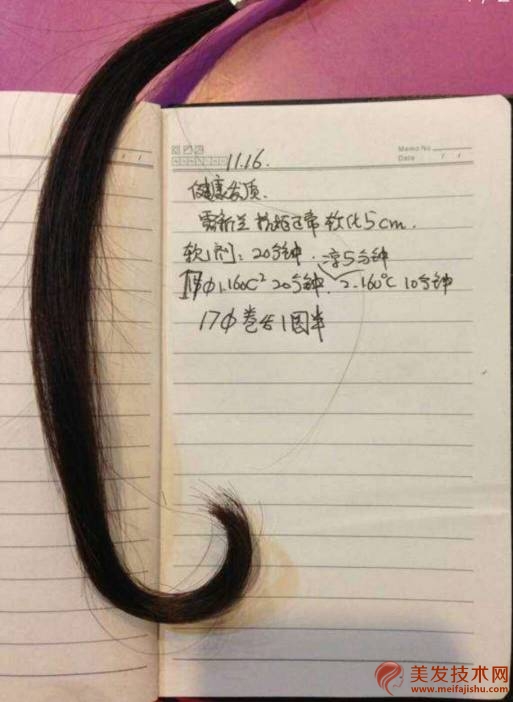 Memo No.
Date / /
11.16.
健康发质.
正常 软化5cm.
软化剂: 20分钟. 浮5分钟
20分钟. 2.160℃ 10分钟
17Φ 卷 1圈半
美发技术网
www.meifajishu.com